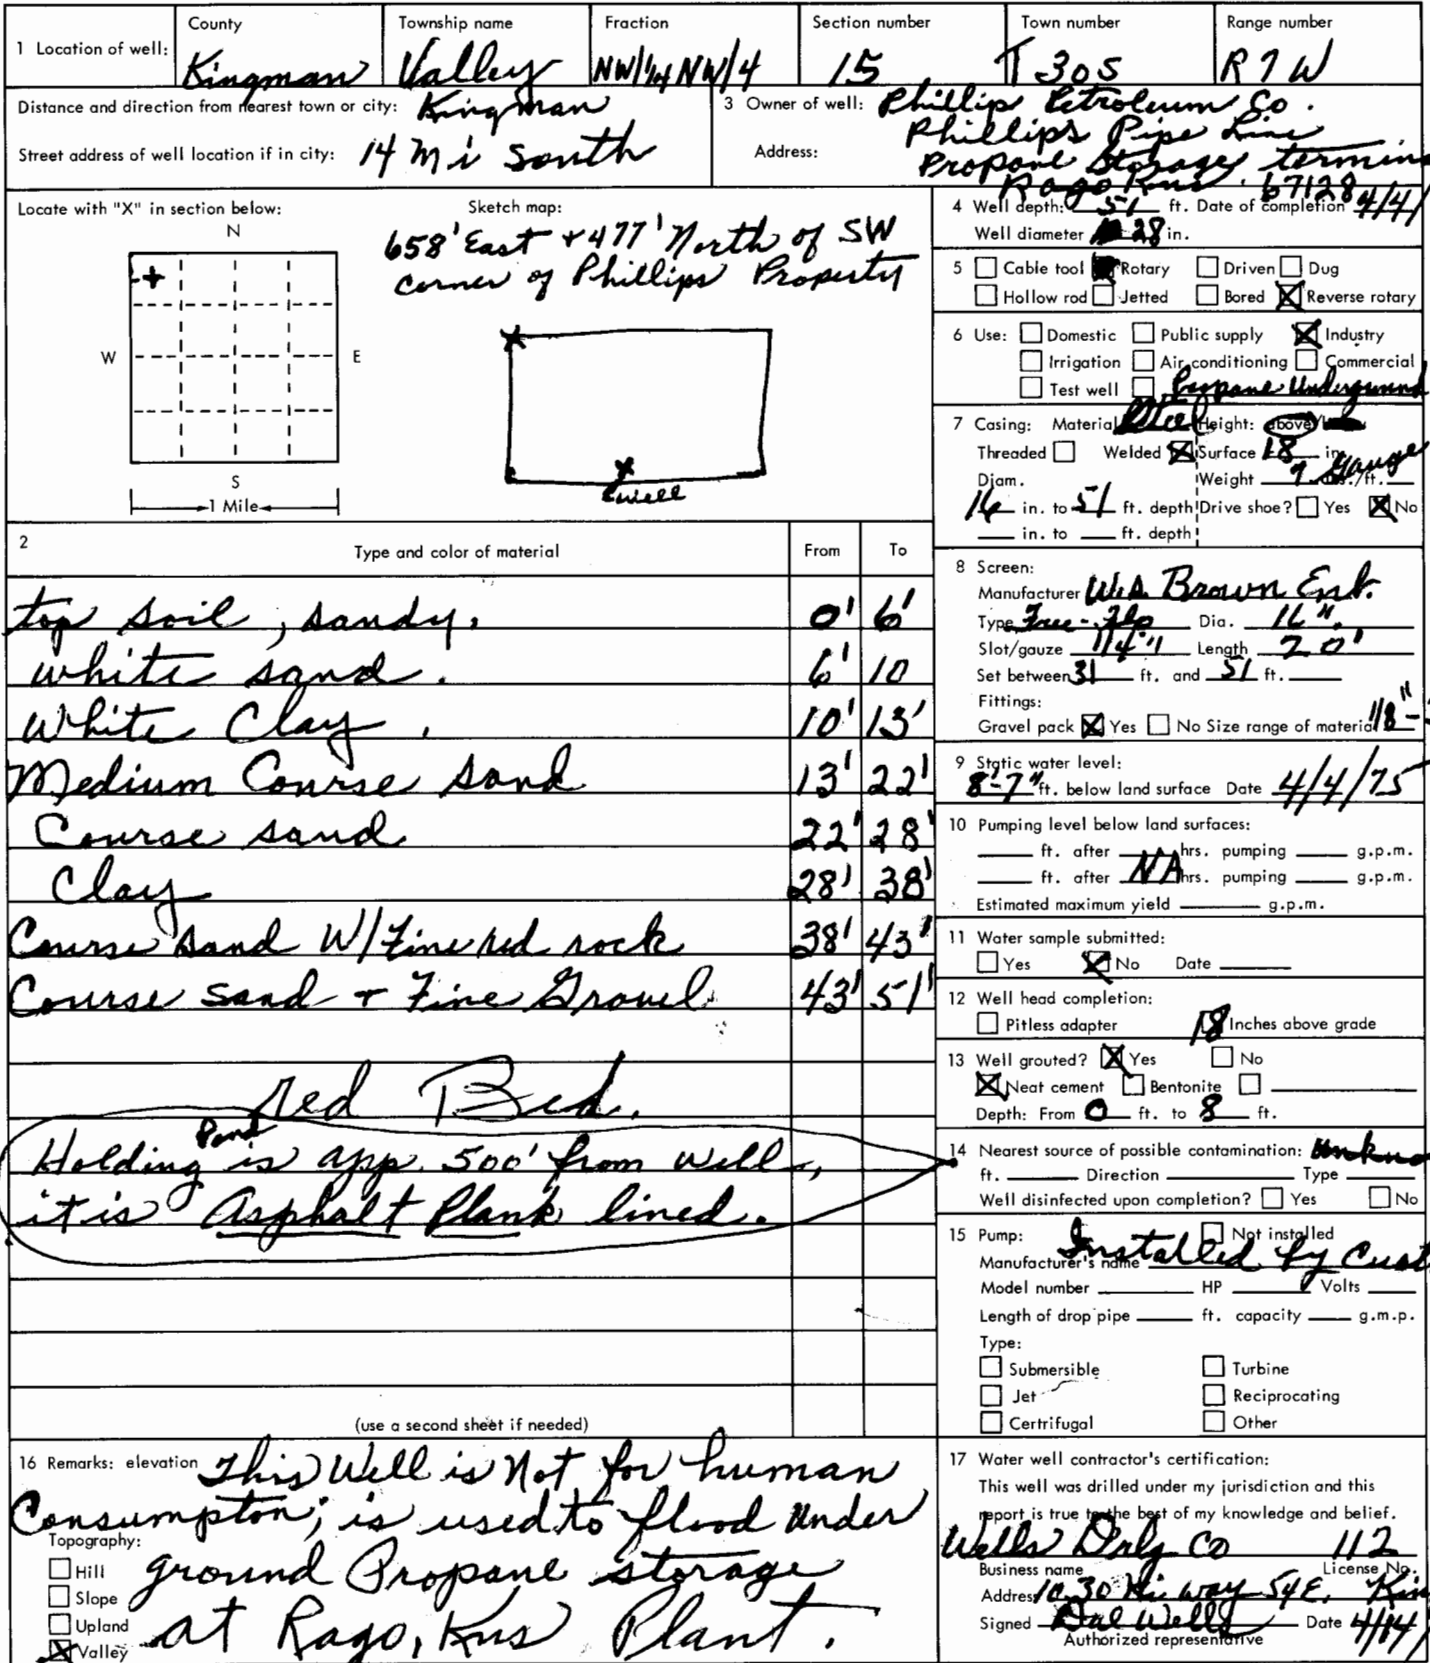 County Township name Fraction Section number Town number Range number
1 Location of well: Kingman Valley NW/1/4 NW/4 15 T 30S R 7 W
Distance and direction from nearest town or city: Kingman
Street address of well location if in city: 14 Mi south
3 Owner of well: Phillip Petroleum Co.
Phillips Pipe Line
Address: Propane Storage termin
Rago Kns. 67128
Locate with "X" in section below:
N
W E
S
1 Mile
Sketch map:
658' East + 477' North of SW
corner of Phillips Property
Well
4 Well depth: 51 ft. Date of completion 4/4/
Well diameter 28 in.
5 Cable tool Rotary Driven Dug
Hollow rod Jetted Bored X Reverse rotary
6 Use: Domestic Public supply X Industry
Irrigation Air conditioning Commercial
Test well Propane Underground
7 Casing: Material Steel Height: above/
Threaded Welded X Surface 18 in.
Diam. Weight 7 Gauge /ft.
16 in. to 51 ft. depth Drive shoe? Yes X No
in. to ft. depth
2 Type and color of material From To
top soil, sandy. 0' 6'
white sand. 6' 10
White Clay. 10' 13'
Medium Course sand 13' 22'
Course sand 22' 28'
Clay 28' 38'
Course sand W/Fine red rock 38' 43'
Course sand + Fine Gravel 43' 51'
red Bed.
Holding Pond is app. 500' from well,
it is Asphalt Plank lined.
(use a second sheet if needed)
8 Screen:
Manufacturer W.A. Brown Ent.
Type Free-Flo Dia. 16".
Slot/gauze 1/4" Length 20'
Set between 31 ft. and 51 ft.
Fittings:
Gravel pack X Yes No Size range of material 1/8"-
9 Static water level:
8'-7" ft. below land surface Date 4/4/75
10 Pumping level below land surfaces:
ft. after hrs. pumping g.p.m.
ft. after NA hrs. pumping g.p.m.
Estimated maximum yield g.p.m.
11 Water sample submitted:
Yes X No Date
12 Well head completion:
Pitless adapter 18 Inches above grade
13 Well grouted? X Yes No
X Neat cement Bentonite
Depth: From 0 ft. to 8 ft.
14 Nearest source of possible contamination: Unkno
ft. Direction Type
Well disinfected upon completion? Yes No
15 Pump: Not installed
Manufacturer's name Installed by Cust
Model number HP Volts
Length of drop pipe ft. capacity g.m.p.
Type:
Submersible Turbine
Jet Reciprocating
Certrifugal Other
16 Remarks: elevation This Well is Not for human
Consumpton; is used to flood Under
ground Propane storage
at Rago, Kns Plant.
Topography:
Hill
Slope
Upland
X Valley
17 Water well contractor's certification:
This well was drilled under my jurisdiction and this
report is true to the best of my knowledge and belief.
Wells Drlg Co 112
Business name License No.
Address 1030 Hi way 54 E. Kin
Signed Dal Wells Date 4/14/
Authorized representative